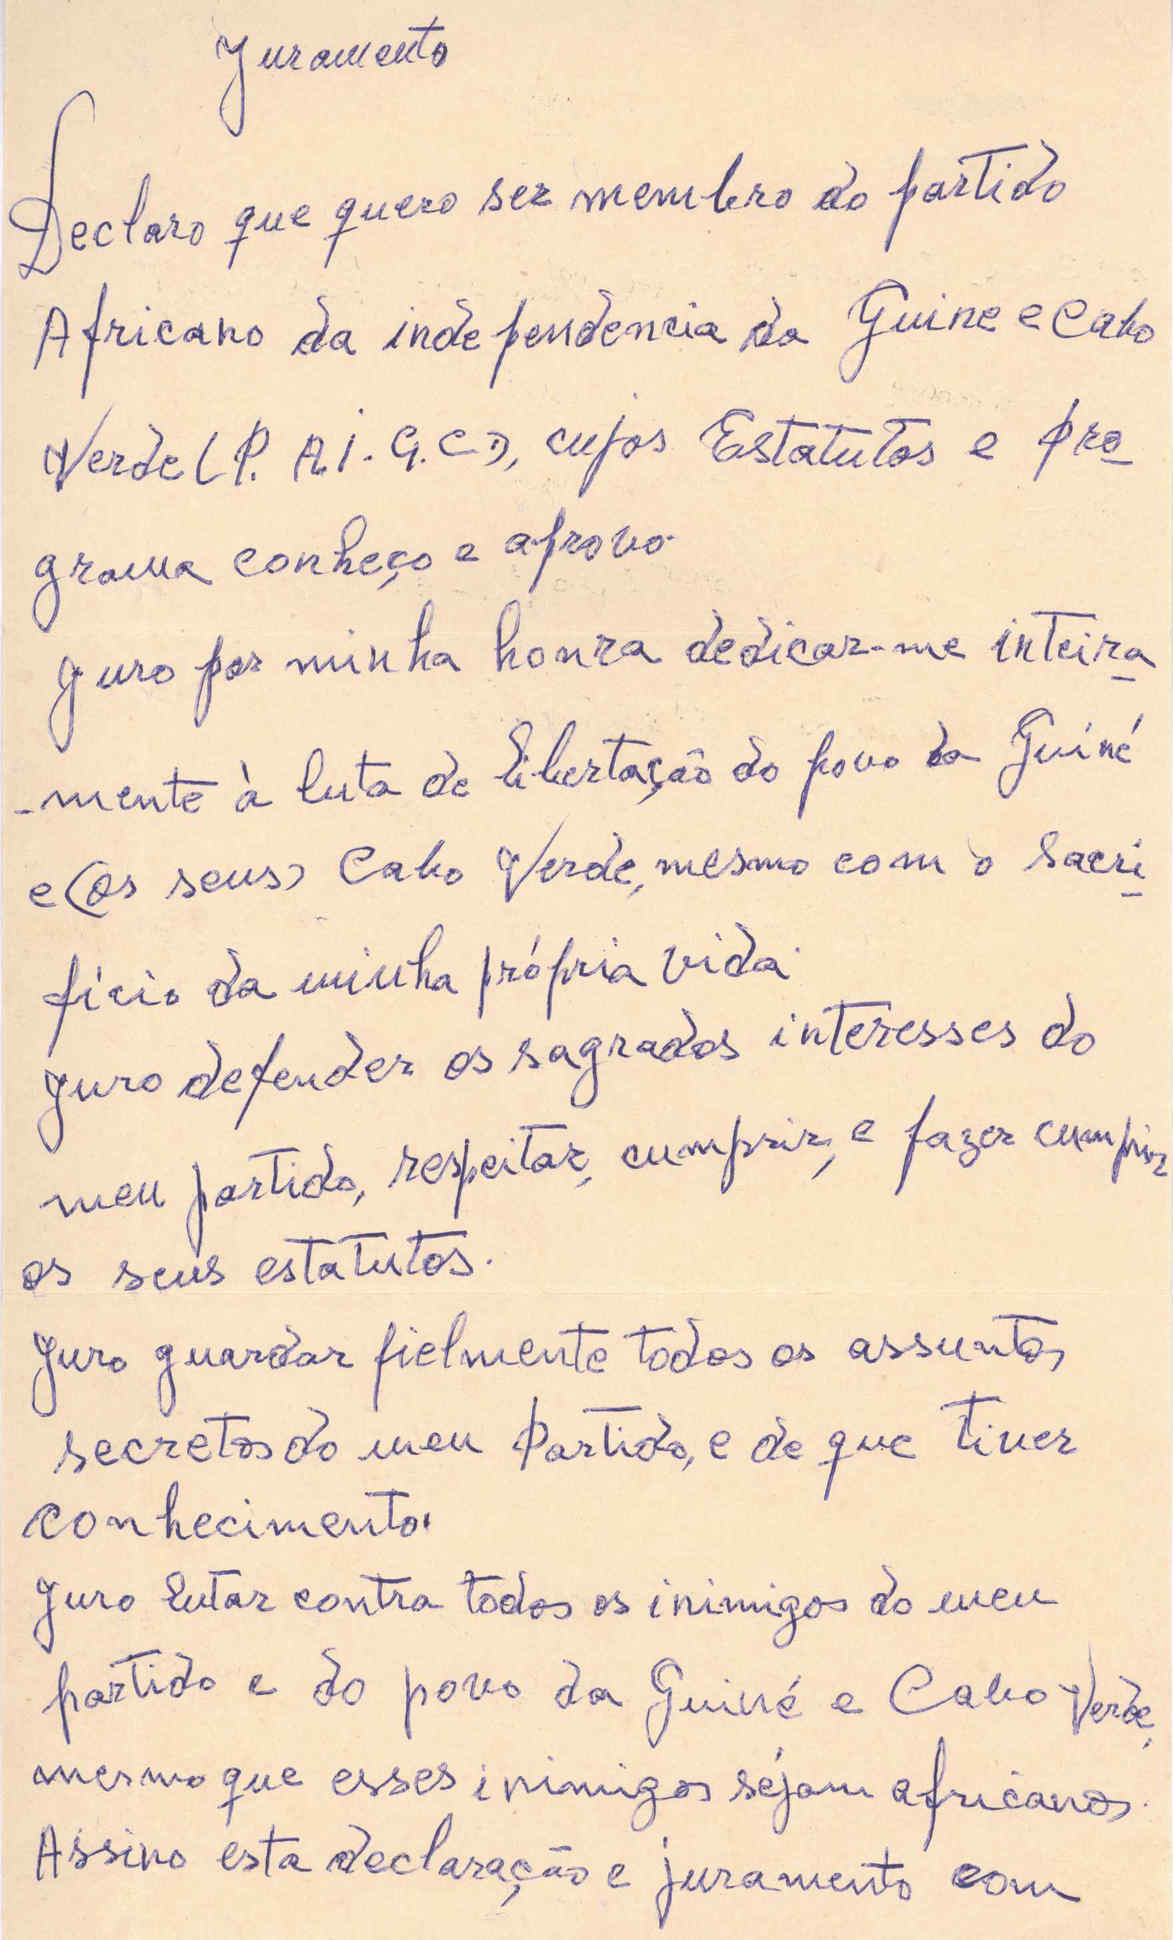 Juramento
Declaro que quero ser membro do partido
Africano da independencia da Guine e Cabo
Verde (P. A. I. G. C.), cujos Estatutos e pro
grama conheço e aprovo.
Juro por minha honra dedicar-me inteira
-mente à luta de libertação do povo da Guiné
e (os seus) Cabo Verde, mesmo com o sacri
fício da minha própria vida.
Juro defender os sagrados interesses do
meu partido, respeitar, cumprir, e fazer cumprir
os seus estatutos.
Juro guardar fielmente todos os assuntos
secretos do meu Partido, e de que tiver
conhecimento.
Juro lutar contra todos os inimigos do meu
partido e do povo da Guiné e Cabo Verde,
mesmo que esses inimigos séjam africanos.
Assino esta declaração e juramento com